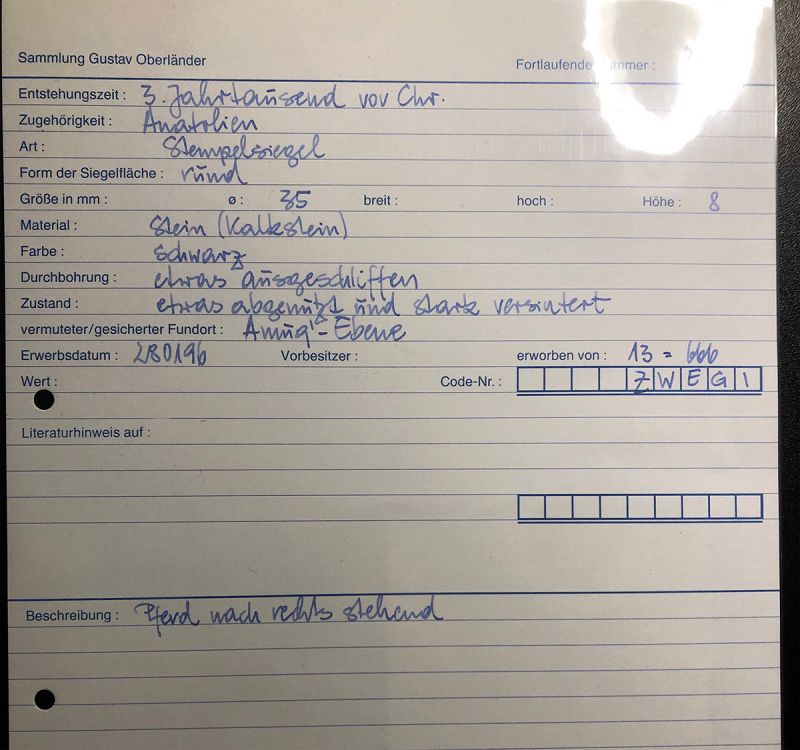 Sammlung Gustav Oberländer
Fortlaufende mmer :
Entstehungszeit : 3. Jahrtausend vor Chr.
Zugehörigkeit : Anatolien
Art : Stempelsiegel
Form der Siegelfläche : rund
Größe in mm : ø : 35 breit : hoch : Höhe : 8
Material : Stein (Kalkstein)
Farbe : schwarz
Durchbohrung : etwas ausgeschliffen
Zustand : etwas abgenutzt und stark versintert
vermuteter/gesicherter Fundort : Amuq'-Ebene
Erwerbsdatum : 280196 Vorbesitzer : erworben von : 13 = 666
Wert : Code-Nr. : ZWEGI
Literaturhinweis auf :
Beschreibung : Pferd nach rechts stehend